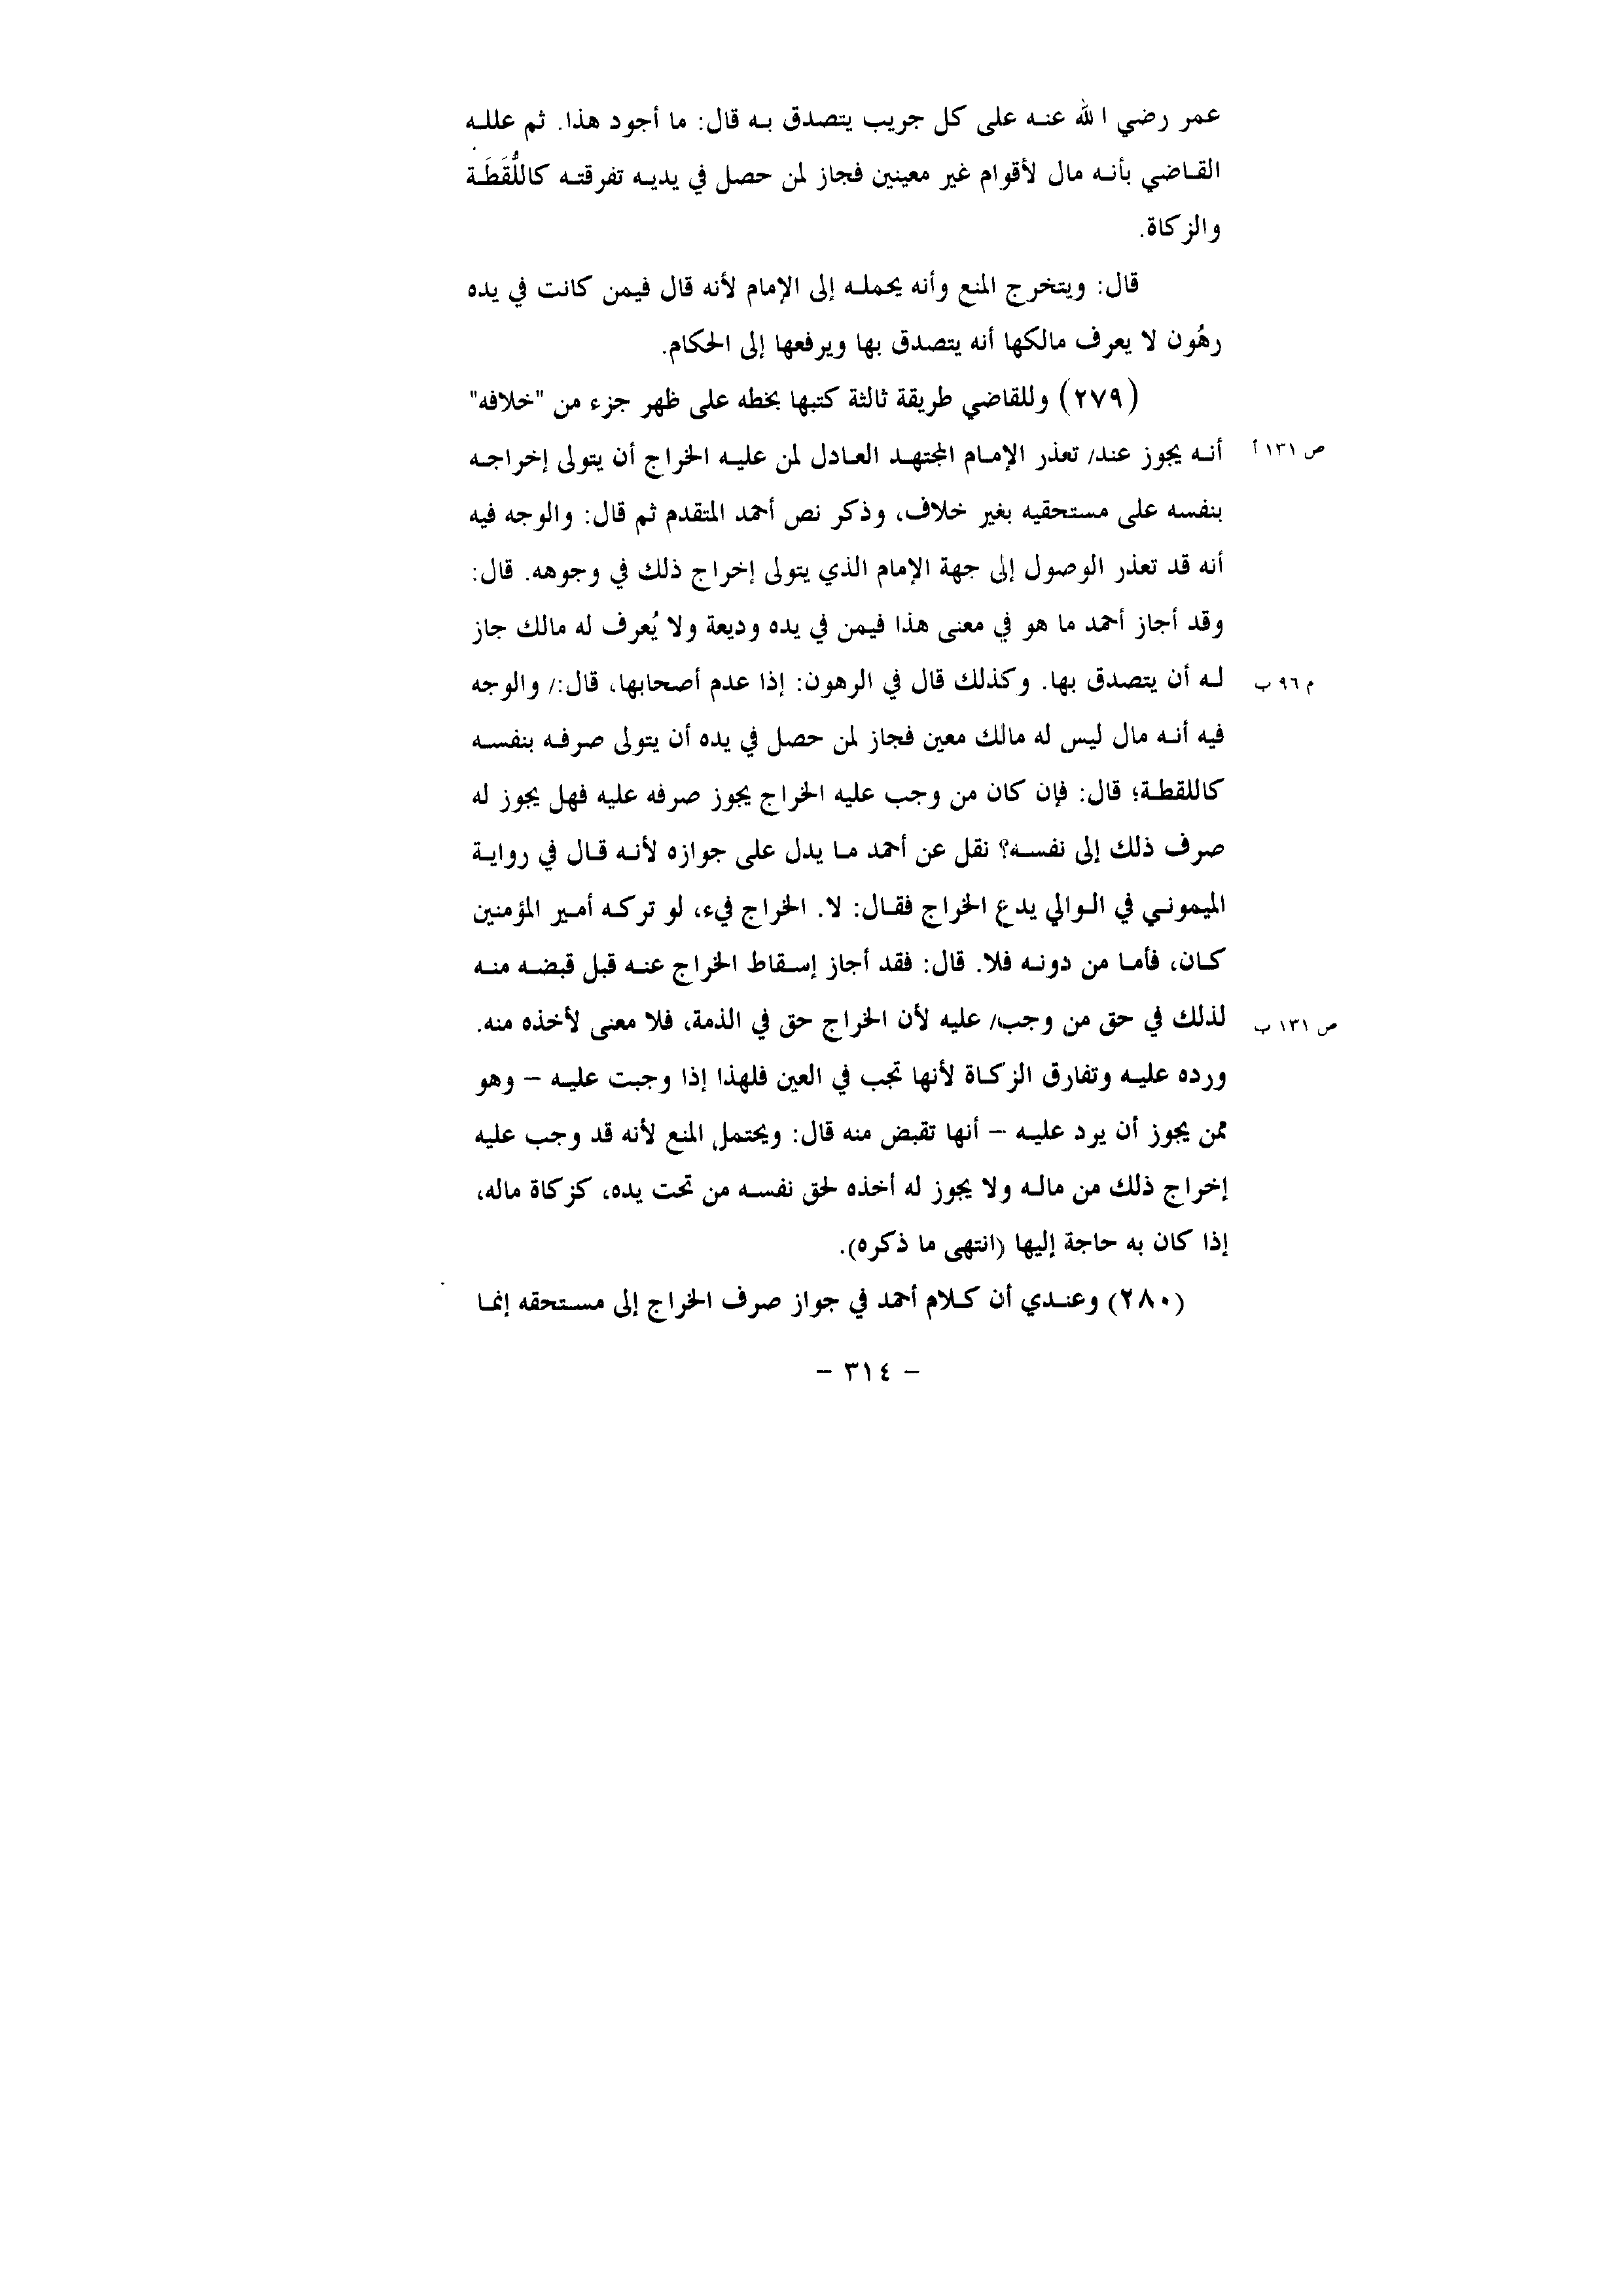 عمر رضي الله عنه على كل جريب يتصدق به قال: ما أجود هذا. ثم علله
القاضي بأنه مال لأقوام غير معينين فجاز لمن حصل في يديه تفرقته كاللُّقَطَة
والزكاة.
قال: ويتخرج المنع وأنه يحمله إلى الإمام لأنه قال فيمن كانت في يده
رهُون لا يعرف مالكها أنه يتصدق بها ويرفعها إلى الحكام.
(٢٧٩) وللقاضي طريقة ثالثة كتبها بخطه على ظهر جزء من "خلافه"
أنه يجوز عند/ تعذر الإمام المجتهد العادل لمن عليه الخراج أن يتولى إخراجه
ص ١٣١ أ
بنفسه على مستحقيه بغير خلاف، وذكر نص أحمد المتقدم ثم قال: والوجه فيه
أنه قد تعذر الوصول إلى جهة الإمام الذي يتولى إخراج ذلك في وجوهه. قال:
وقد أجاز أحمد ما هو في معنى هذا فيمن في يده وديعة ولا يُعرف له مالك جاز
له أن يتصدق بها. وكذلك قال في الرهون: إذا عدم أصحابها، قال:/ والوجه
م ٩٦ ب
فيه أنه مال ليس له مالك معين فجاز لمن حصل في يده أن يتولى صرفه بنفسه
كاللقطة؛ قال: فإن كان من وجب عليه الخراج يجوز صرفه عليه فهل يجوز له
صرف ذلك إلى نفسه؟ نقل عن أحمد ما يدل على جوازه لأنه قال في رواية
الميموني في الوالي يدع الخراج فقال: لا. الخراج فيء، لو تركه أمير المؤمنين
كان، فأما من دونه فلا. قال: فقد أجاز إسقاط الخراج عنه قبل قبضه منه
لذلك في حق من وجب/ عليه لأن الخراج حق في الذمة، فلا معنى لأخذه منه.
ص ١٣١ ب
ورده عليه وتفارق الزكاة لأنها تجب في العين فلهذا إذا وجبت عليه – وهو
ممن يجوز أن يرد عليه – أنها تقبض منه قال: ويحتمل المنع لأنه قد وجب عليه
إخراج ذلك من ماله ولا يجوز له أخذه لحق نفسه من تحت يده، كزكاة ماله،
إذا كان به حاجة إليها (انتهى ما ذكره).
(٢٨٠) وعندي أن كلام أحمد في جواز صرف الخراج إلى مستحقه إنما
– ٣١٤ –